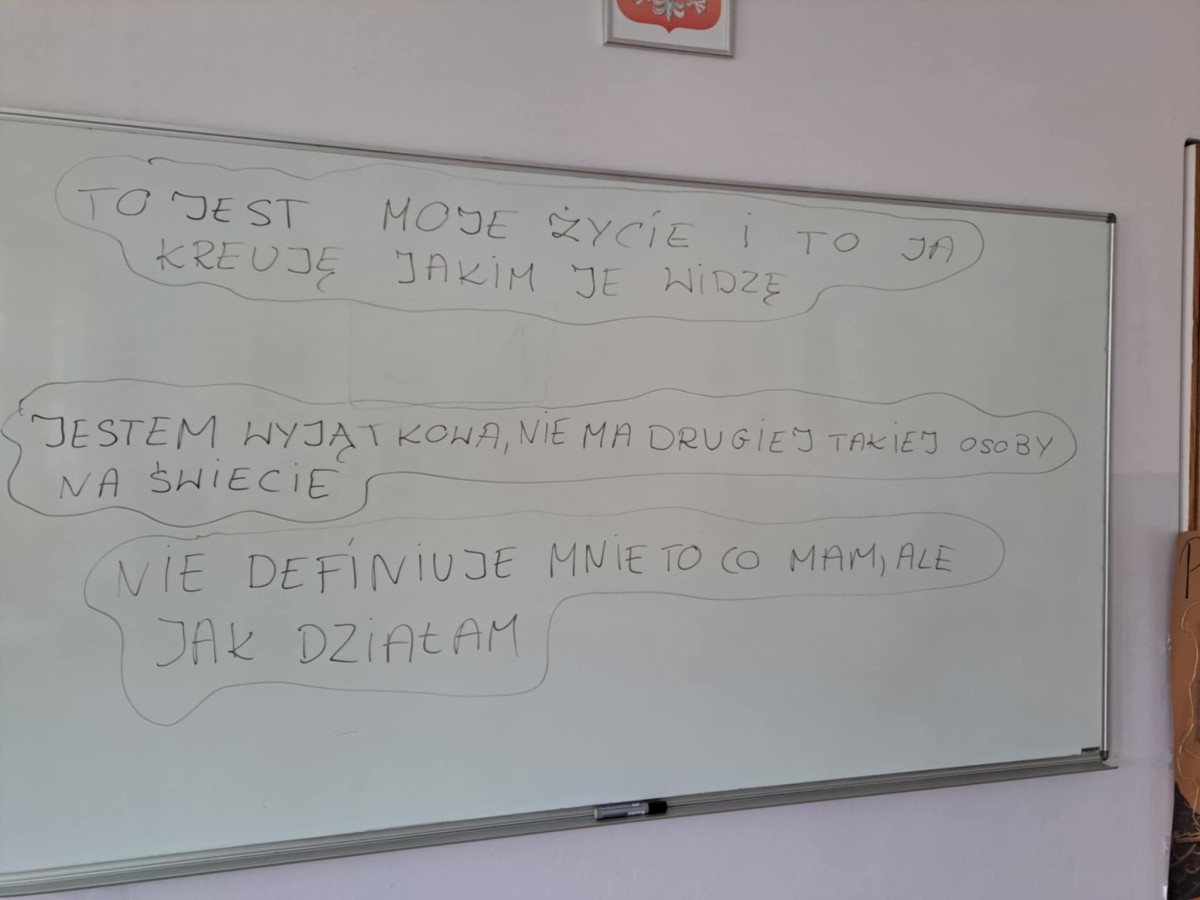 TO JEST MOJE ŻYCIE I TO JA
KREUJĘ JAKIM JE WIDZĘ
JESTEM WYJĄTKOWA, NIE MA DRUGIEJ TAKIEJ OSOBY
NA ŚWIECIE
NIE DEFINIUJE MNIE TO CO MAM, ALE
JAK DZIAŁAM
P